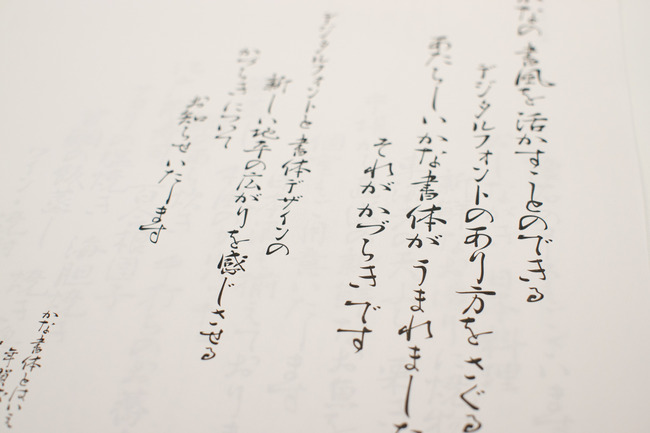 かなの書風を活かすことのできる
デジタルフォントのあり方をさぐる
あたらしいかな書体がうまれました
それがかづらきです
デジタルフォントと書体デザインの
新しい地平の広がりを感じさせる
かづらきについて
お知らせいたします
かな書体とはいえ